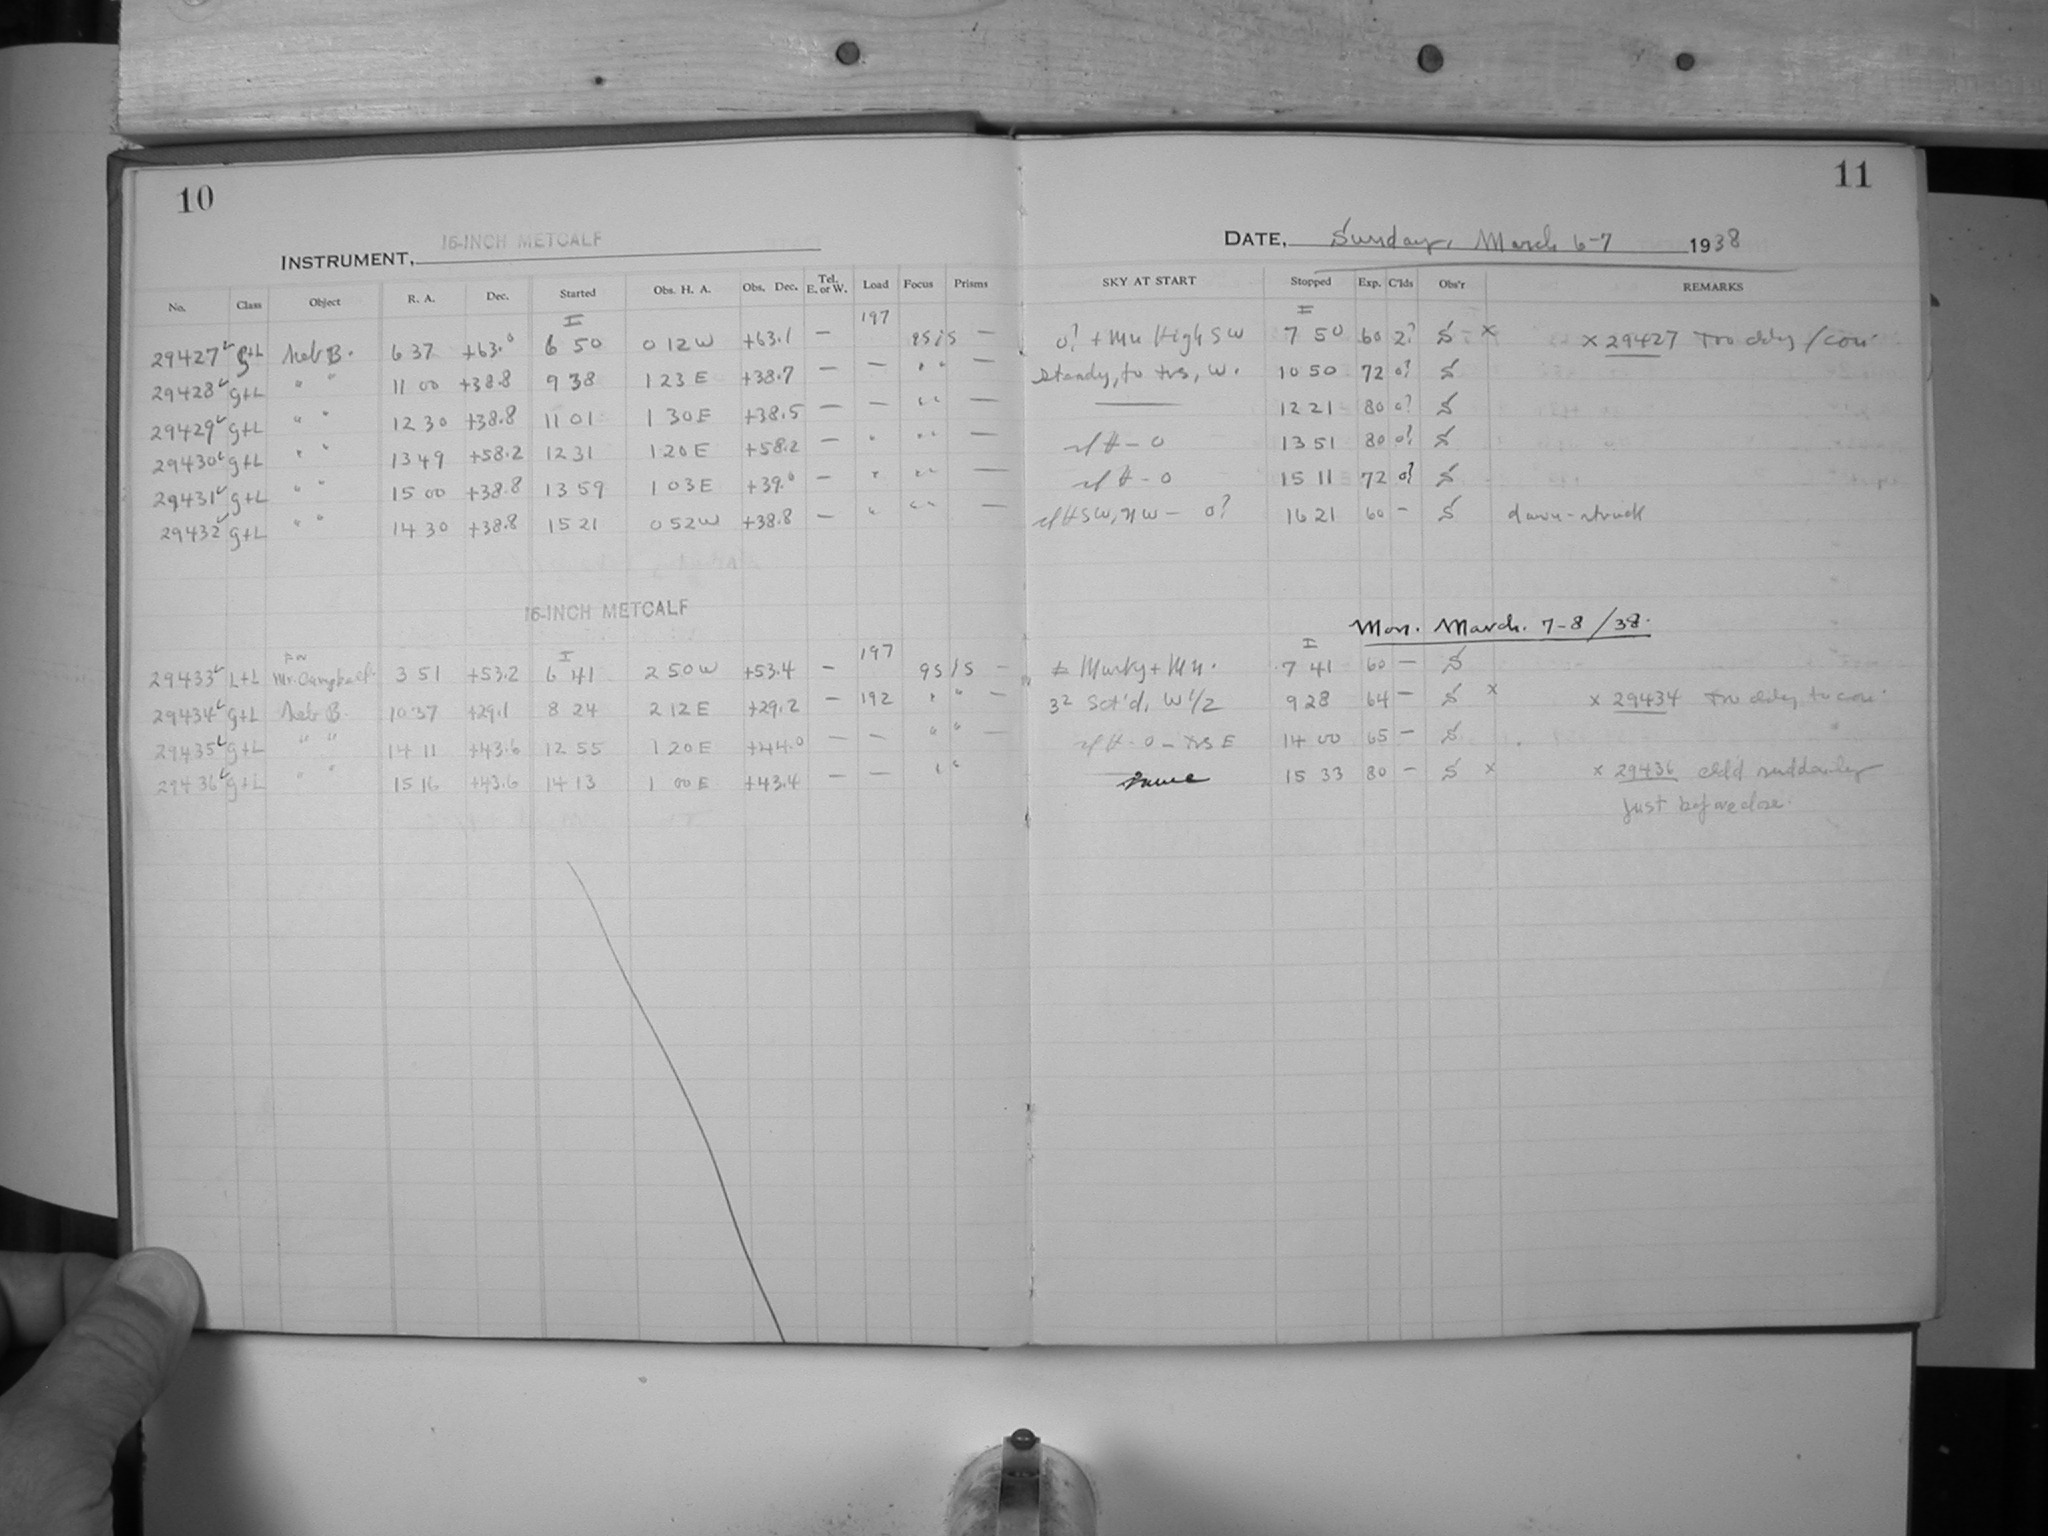 10
INSTRUMENT, 16-INCH METCALF
No. Class Object R. A. Dec. Started Obs. H. A. Obs. Dec. Tel. E. or W. Load Focus Prisms
I 197
29427 g+L Neb B. 6 37 +63.0 6 50 0 12 W +63.1 — 95/5 —
29428 g+L " " 11 00 +38.8 9 38 1 23 E +38.7 — — " " —
29429 g+L " " 12 30 +38.8 11 01 1 30 E +38.5 — — " " —
29430 g+L " " 13 49 +58.2 12 31 1 20 E +58.2 — " " " —
29431 g+L " " 15 00 +38.8 13 59 1 03 E +39.0 — " " " —
29432 g+L " " 14 30 +38.8 15 21 0 52 W +38.8 — " " " —
16-INCH METCALF
for I 197
29433 L+L Mr. Campbell 3 51 +53.2 6 41 2 50 W +53.4 — 95/5 —
29434 g+L Neb B. 10 37 +29.1 8 24 2 12 E +29.2 — 192 " " —
29435 g+L " " 14 11 +43.6 12 55 1 20 E +44.0 — — " "
29436 g+L " " 15 16 +43.6 14 13 1 00 E +43.4 — — " "
11
DATE, Sunday, March 6-7 1938
SKY AT START Stopped Exp. C'lds Obs'r REMARKS
I
0? + Mn High SW 7 50 60 2? S x x 29427 Too cldy / con.
Steady, to trs, W. 10 50 72 0? S
— 12 21 80 0? S
13 51 80 0? S
15 11 72 0? S
SW, NW — 0? 16 21 60 — S dawn-struck
Mon. March. 7-8/38.
I
Murky + Mn. 7 41 60 — S
Sct'd, W 1/2 9 28 64 — S x x 29434 Too cldy to con.
0 — trs E 14 00 65 — S
Same 15 33 80 — S x x 29436 cld'd suddenly
just before close.